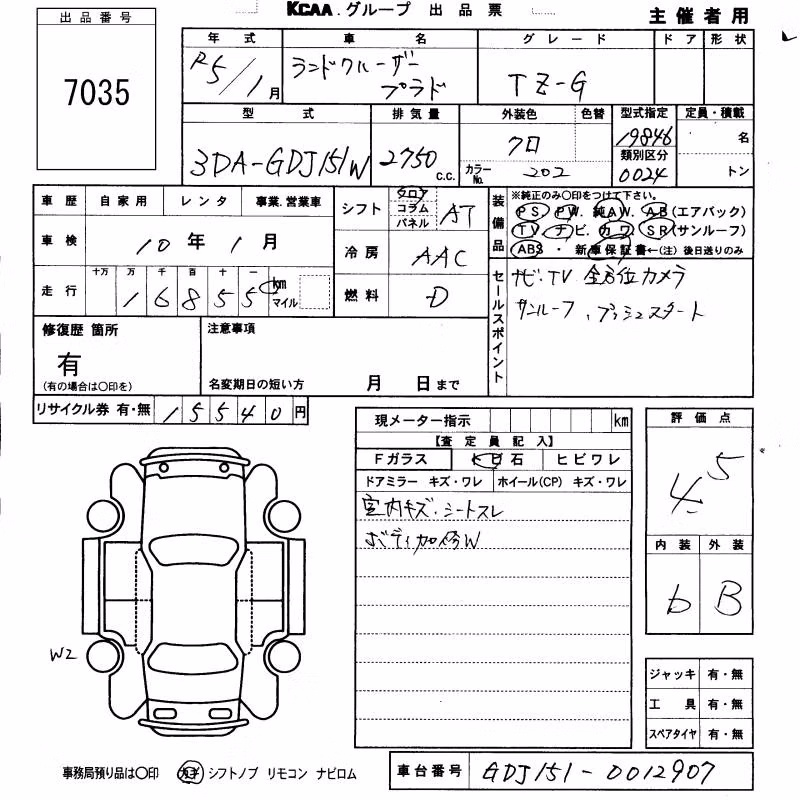 KCAA.グループ 出品票
主催者用
出品番号
7035
年式 車名 グレード ドア 形状
R5/1月 ランドクルーザープラド TZ-G
型式 排気量 外装色 色替 型式指定 定員・積載
3DA-GDJ151W 2750 c.c. クロ 19846 名
カラーNo. 202 類別区分 0024 トン
車歴 自家用 レンタ 事業.営業車
シフト フロア コラム パネル AT
装備品
※純正のみ〇印をつけて下さい。
PS. PW. 純AW. AB(エアバック)
TV. ナビ. カワ. SR(サンルーフ)
ABS・新車保証書←(注)後日送りのみ
車検 10年1月
冷房 AAC
走行 十万 万 千 百 十 一
16855 km マイル
燃料 D
セールスポイント
ナビ.TV 全方位カメラ
サンルーフ、プッシュスタート
修復歴 箇所
有
(有の場合は〇印を)
注意事項
名変期日の短い方 月 日まで
リサイクル券 有・無 15540円
現メーター指示 km
【査定員記入】
Fガラス 石 ヒビワレ
ドアミラー キズ・ワレ ホイール(CP) キズ・ワレ
室内キズ.シートスレ
ボディ加修W
評価点
4.5
内装 外装
b B
W2
ジャッキ 有・無
工具 有・無
スペアタイヤ 有・無
事務局預り品は〇印 シフトノブ リモコン ナビロム
車台番号 GDJ151-0012907